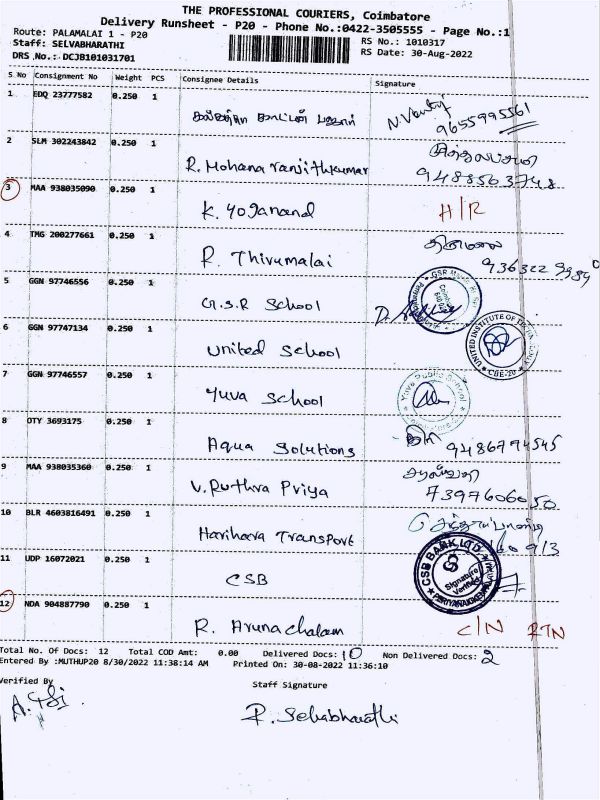 THE PROFESSIONAL COURIERS, Coimbatore
Delivery Runsheet - P20 - Phone No.:0422-3505555 - Page No.:1
Route: PALAMALAI 1 - P20
Staff: SELVABHARATHI
DRS No.: DCJB101031701
RS No.: 1010317
RS Date: 30-Aug-2022
S No Consignment No Weight PCS Consignee Details Signature
1 EDQ 23777582 0.250 1
9655995561
2 SLM 302243842 0.250 1 R. Mohana ranjithkumar
9488563748
3 MAA 938035090 0.250 1 K. Yoganand H/R
4 TMG 200277661 0.250 1 R. Thirumalai திருமலை
5 GGN 97746556 0.250 1 G.S.R School
6 GGN 97747134 0.250 1 United School
UNITED INSTITUTE OF TECHNOLOGY CBE-20
7 GGN 97746557 0.250 1 Yuva School
Yuva Public School
8 OTY 3693175 0.250 1 Aqua Solutions 9486794545
9 MAA 938035360 0.250 1 V. Ruthra Priya
7397606050
10 BLR 4603816491 0.250 1 Harihara Transport
11 UDP 16072021 0.250 1 CSB
CSB BANK LTD. Signature Verified
12 NDA 904887790 0.250 1 R. Arunachalam C/N RTN
Total No. Of Docs: 12 Total COD Amt: 0.00 Delivered Docs: 10 Non Delivered Docs: 2
Entered By :MUTHUP20 8/30/2022 11:38:14 AM Printed On: 30-08-2022 11:36:10
Verified By Staff Signature
P. Selvabharathi